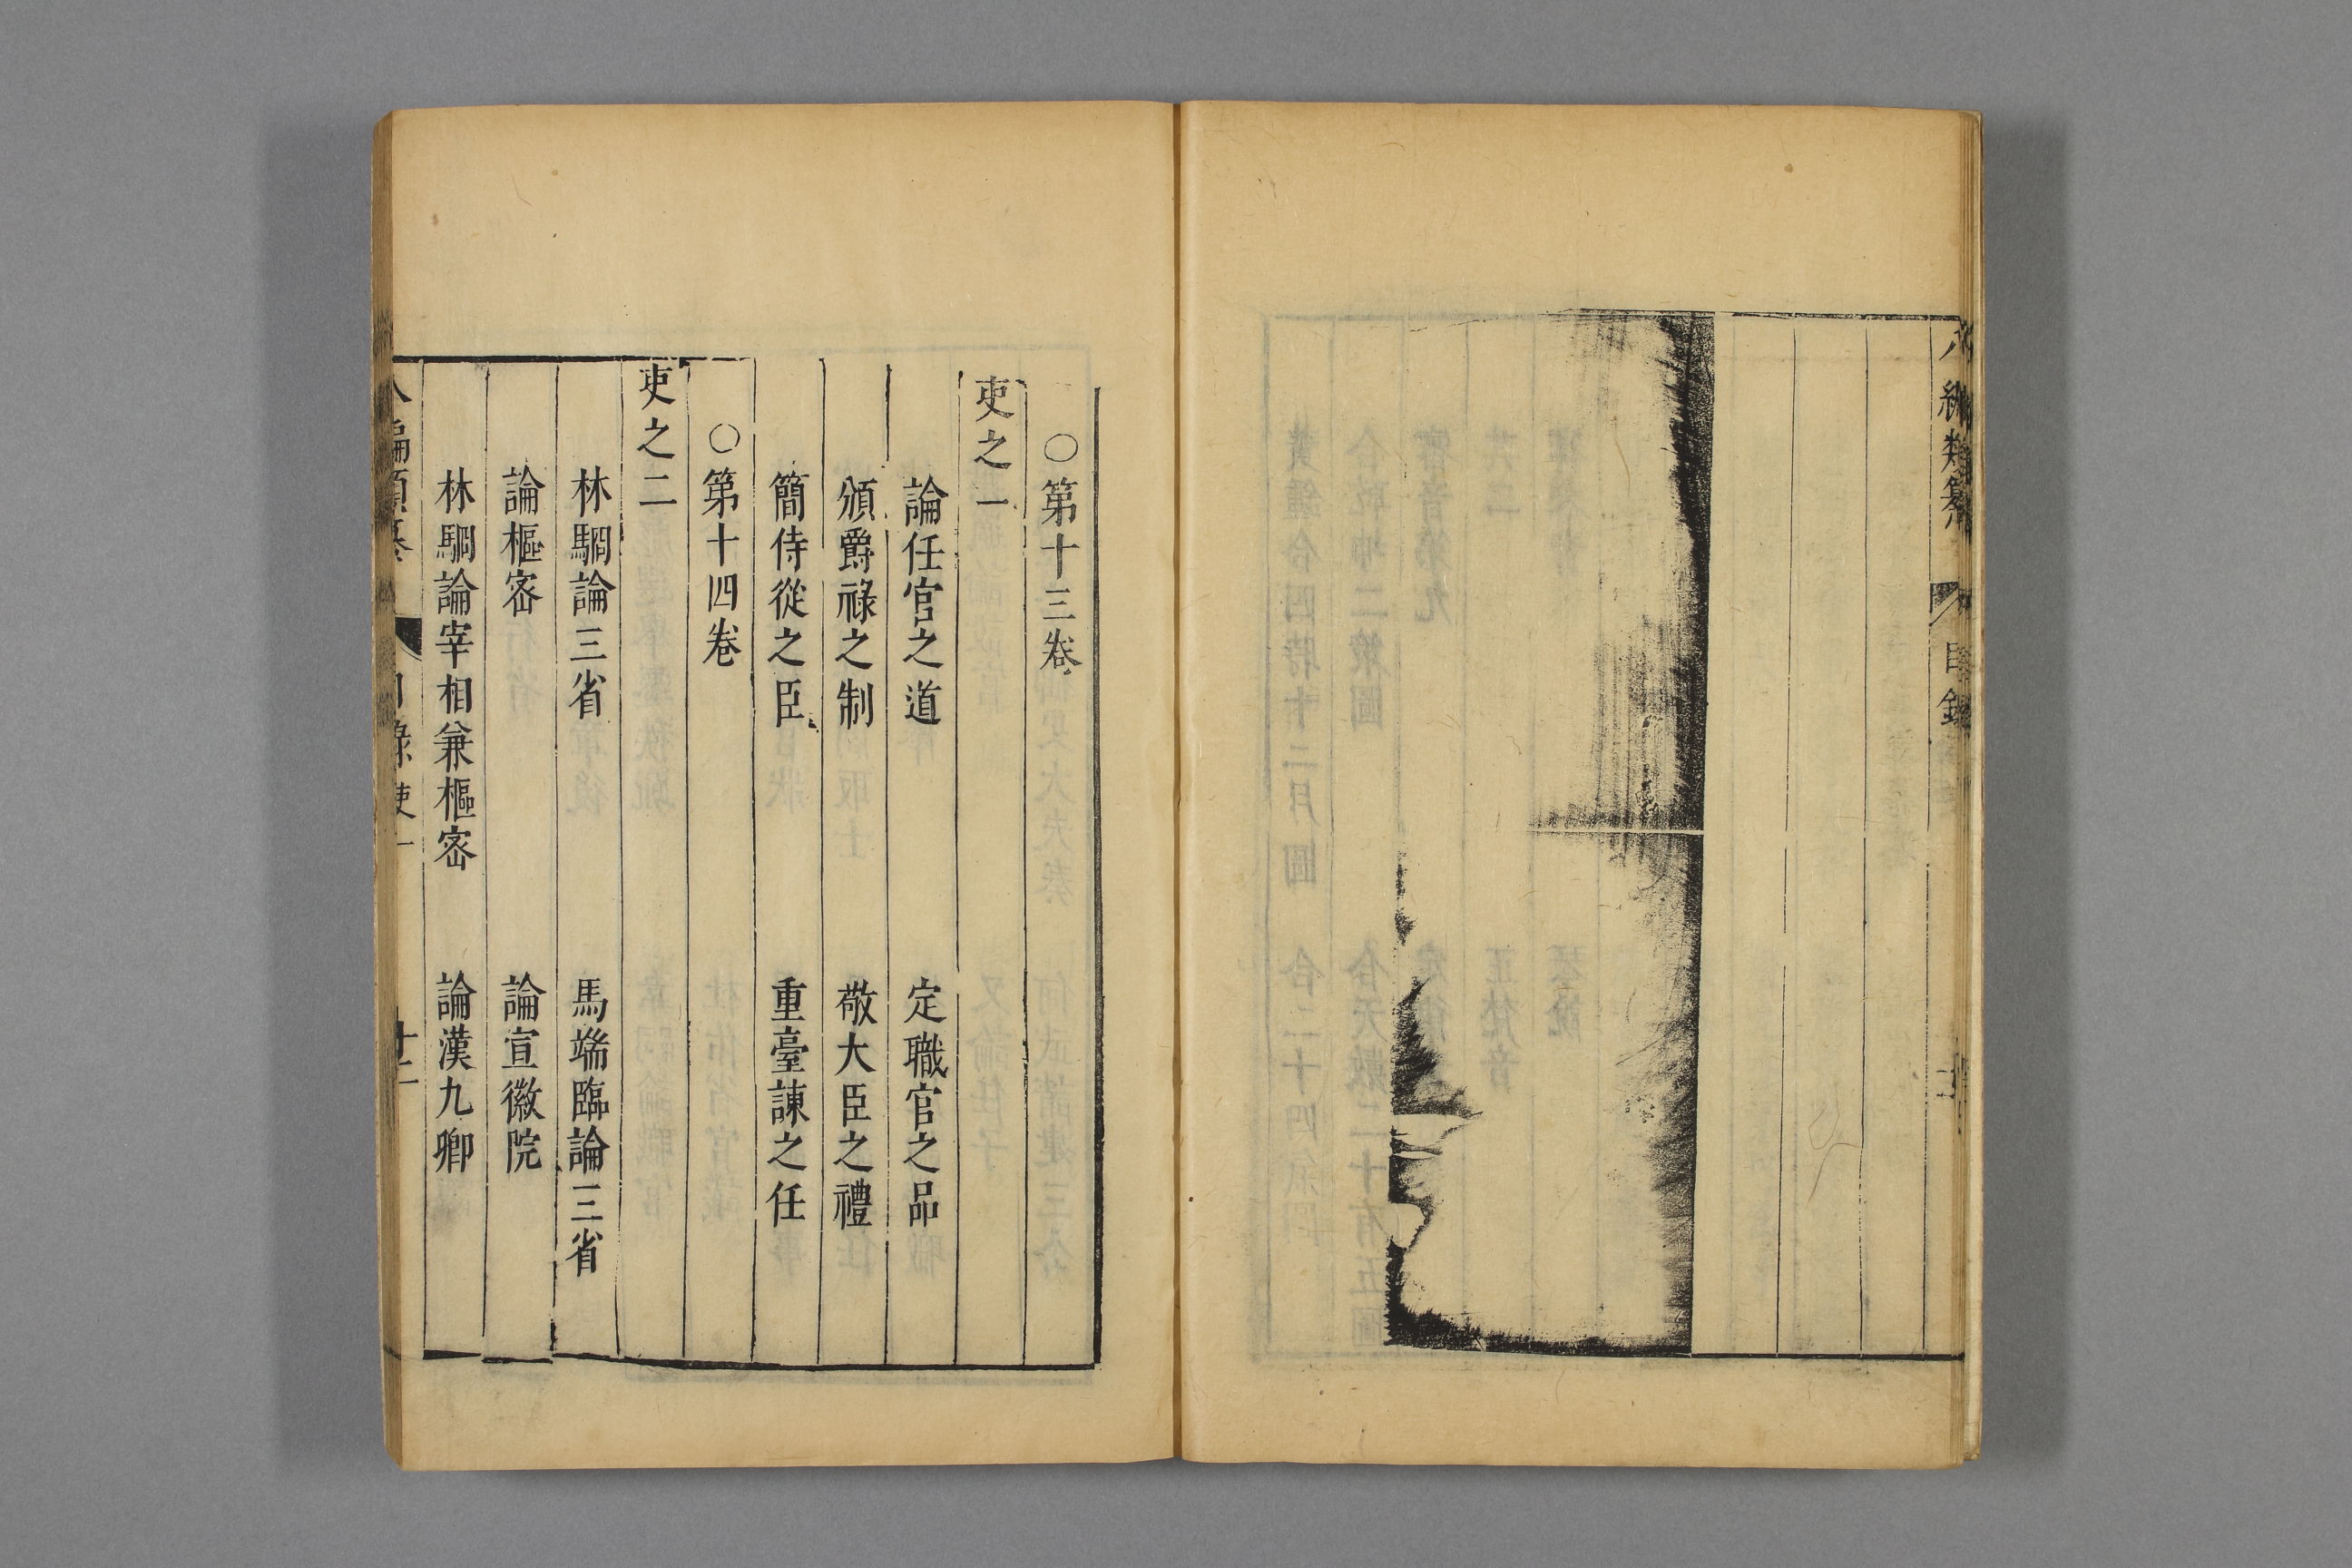 八編類纂
目錄
○第十三卷
吏之一
論任官之道　定職官之品
頒爵祿之制　敬大臣之禮
簡侍從之臣　重臺諫之任
○第十四卷
吏之二
林駉論三省　馬端臨論三省
論樞密　論宣徽院
林駉論宰相兼樞密　論漢九卿
八編類纂　目錄吏一